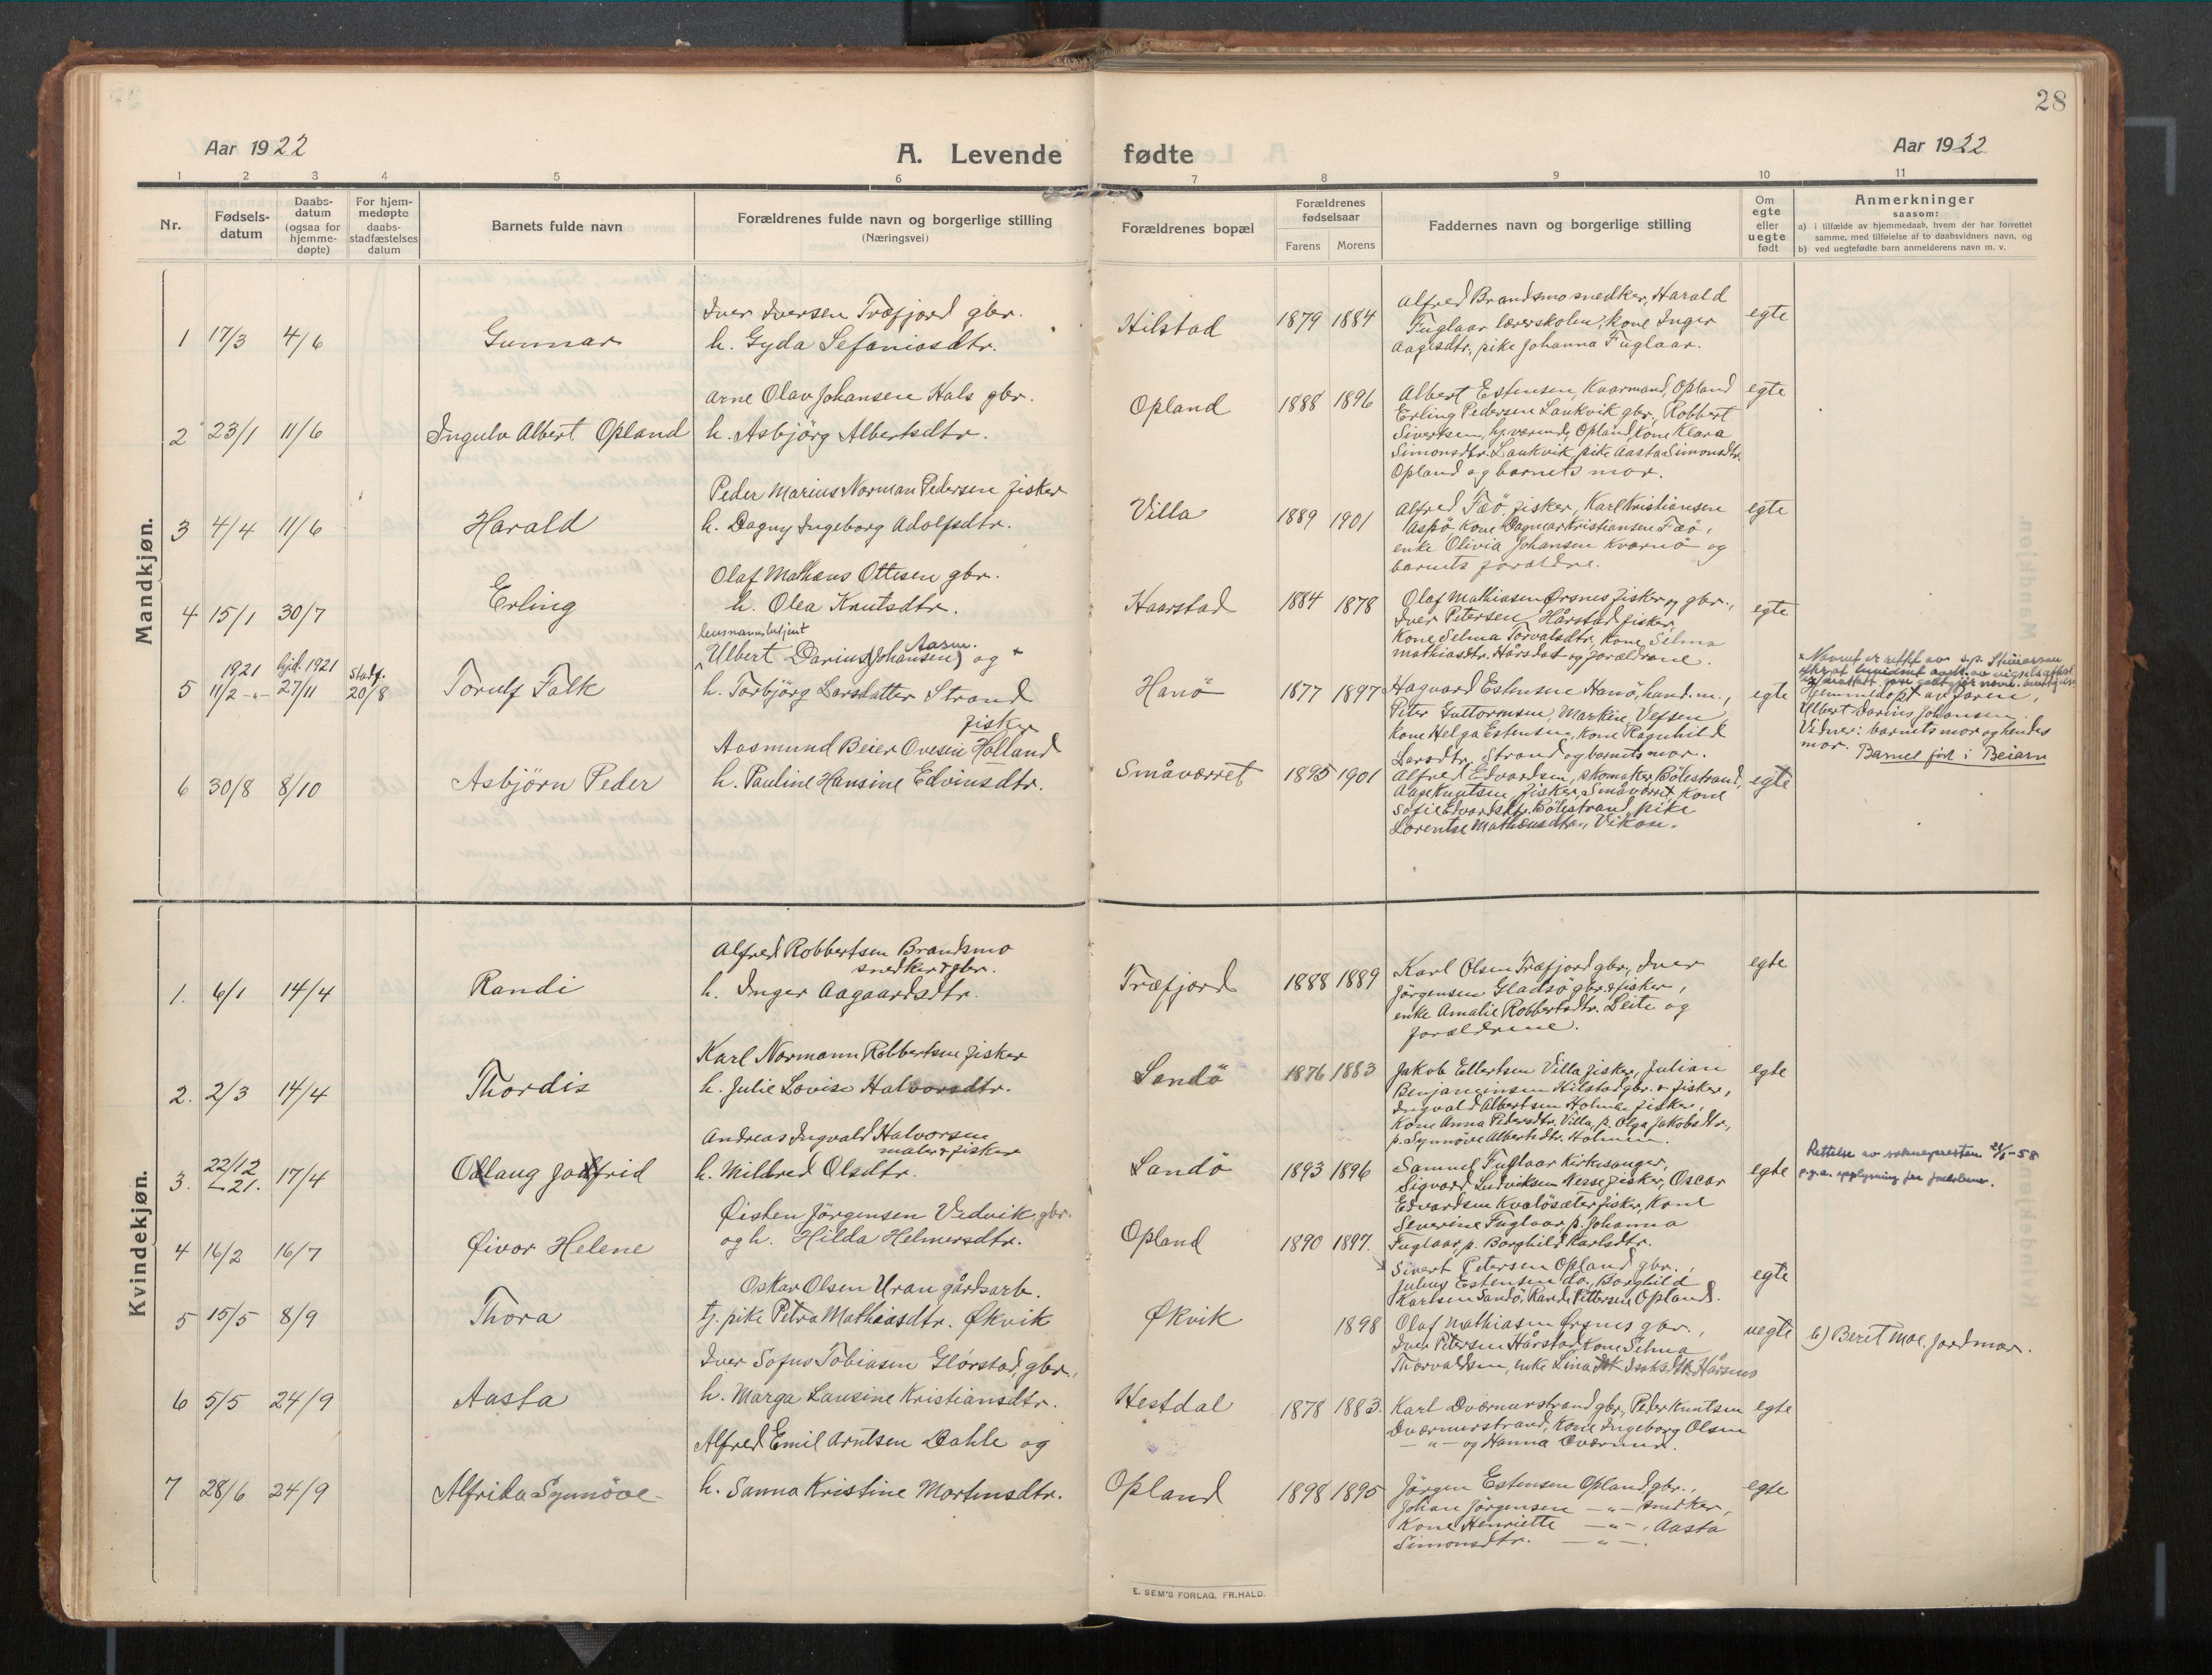 28
Aar 1922
A. Levende fødte
Aar 1922
1 2 3 4 5 6 7 8 9 10 11
Nr.
Fødsels-
datum
Daabs-
datum
(ogsaa for
hjemme-
døpte)
For hjem-
medøpte
daabs-
stadfæstelses
datum
Barnets fulde navn
Forældrenes fulde navn og borgerlige stilling
(Næringsvei)
Forældrenes bopæl
Forældrenes
fødselsaar
Farens Morens
Faddernes navn og borgerlige stilling
Om
egte
eller
uegte
født
Anmerkninger
saasom:
a) i tilfælde av hjemmedaab, hvem der har forrettet
samme, med tilføielse af to daabsvidners navn, og
b) ved uegtefødte barn anmelderens navn m. v.
Mandkjøn.
1 17/3 4/6 Gunnar
Iver Iversen Træfjord gbr.
h. Gyda Sefaniasdtr.
Hilstad 1879 1884
Alfred Brandsmo snedker, Harald
Fuglaar lærerskolen, kone Inger
Aagesdtr., pike Johanna Fuglaar.
egte
2 23/1 11/6 Ingulv Albert Opland
Arne Olav Johansen Hals gbr.
h. Asbjörg Albertsdtr.
Opland 1888 1896
Albert Estensen, Kaarmand, Opland
Erling Pedersen Laukvik gbr., Robbert
Sivertsen, hj.værende, Opland, Kone Klara
Simonsdtr. Laukvik, pike Aasta Simonsdtr.
Opland og barnets mor.
egte
3 4/4 11/6 Harald
Peder Marius Norman Pedersen fisker
h. Dagny Ingeborg Adolfsdtr.
Villa 1889 1901
Alfred Fæö, fisker, Karl Kristiansen
Aspö, Kone Dagmar Kristiansen Fæö,
enke Olivia Johansen Kvarnö og
barnets forældre.
egte
4 15/1 30/7 Erling
Olaf Mathæus Ottesen gbr.
h. Olea Knutsdtr.
Haarstad 1884 1878
Olaf Mathiasen Ørsnes fisker og gbr.,
Iver Petersen Hårstad fisker,
Kone Selma Torvalsdtr, Kone Selma
Mathiasdtr. Hårstad og forældrene.
egte
5 1921 11/2 -"- hjd. 1921 27/11 Stadf. 20/8 Torulf Falk
lensmannsbetjent
Ulbert Darius (Johansen) Aasm. og
h. Torbjörg Larsdatter Strand
Hanö 1877 1897
Hagvard Estensen Hanö, hand.m.,
Peter Guttormsen, Marken, Vefsen,
Kone Helga Estensen, Kone Ragnhild
Larsdtr. Strand og barnets mor.
egte
Hjemmedøpt av faren,
Ulbert Darius Johansen.
Vidner: barnets mor og hendes
mor. Barnet født i Beiarn
6 30/8 8/10 Asbjörn Peder
fisker
Aasmund Beier Ovesen Holland
h. Pauline Hansine Edvinsdtr.
Småværret 1895 1901
Alfred Edvardsen, skomaker, Bölestrand,
Aage Knutsen, fisker, Småværret, Kone
Sofie Edvardsdtr. Bölestrand, pike
Lorentse Mathæusdtr., Vikan.
egte
Kvindekjøn.
1. 6/1 14/4 Randi
Alfred Robbertsen Brandsmo
snedker & gbr.
h. Inger Aagaardsdtr.
Træfjord 1888 1889
Karl Olsen Træfjord gbr., Iver
Jörgensen Gladsö gbr. & fisker,
enke Amalie Robbertsdtr. Leite og
forældrene.
egte
2. 2/3 14/4 Thordis
Karl Normann Robbertsen fisker
h. Julie Lovise Halvorsdtr.
Sandö 1876 1883
Jakob Ellertsen Villa fisker, Julian
Benjaminsen Hilstad gbr. & fisker,
Ingvald Albertsen Holmen fisker,
Kone Anna Pedersdtr. Villa, p. Olga Jakobsdtr.,
p. Synnöve Albertsdtr. Holmen.
egte
3. 22/12 21. 17/4 Odlaug Jodfrid
Andreas Ingvald Halvorsen
maler & fisker
h. Mildred Olsdtr.
Sandö 1893 1896
Samuel Fuglaar Kirkesanger,
Sigvard Ludviksen Nesse fisker, Oscar
Edvardsen Kvalösæter fisker, Kone
Severine Fuglaar, p. Johanna
Fuglaar, p. Borghild Karlsdtr.
egte
Rettelse av soknepresten 21/5-58
p.g.a. opplysning fra foreldrene.
4 16/2 16/7 Øivor Helene
Øisten Jörgensen Vedvik gbr.
og h. Hilda Helmersdtr.
Opland 1890 1897.
Sivert Petersen Opland gbr.,
Julius Estensen do., Borghild
Karlsen Sandö, Kande Pettersen Opland.
egte
5 15/5 8/9 Thora
Oskar Olsen Uran gårdsarb.
tj. pike Petra Mathiasdtr. Økvik
Økvik 1898
Olaf Mathiasen Ørsnes gbr.,
Iver Petersen Hårstad, Kone Selma
Thorvaldsen, enke Lina Isaksdtr. Hårsnes
uegte
b) Beret Moe, jordmor.
6 5/5 24/9 Aasta
Iver Sofus Tobiasen Glörstad, gbr.,
h. Marga Lausine Kristiansdtr.
Hestdal 1878 1883.
Karl Dværnesstrand gbr., Peder Knutsen
Dværnesstrand, Kone Ingeborg Olsen
-"- og Hanna Dværnes.
egte
7 28/6 24/9 Alfrida Synnöve
Alfred Emil Arntsen Dahle og
h. Sanna Kristine Martinsdtr.
Opland 1898 1895
Jörgen Estensen Opland gbr.,
Johan Jörgensen -"- snedker,
Kone Henriette -"-, Aasta
Simonsdtr. -"-.
egte
E. SEM'S FORLAG, FR.HALD.